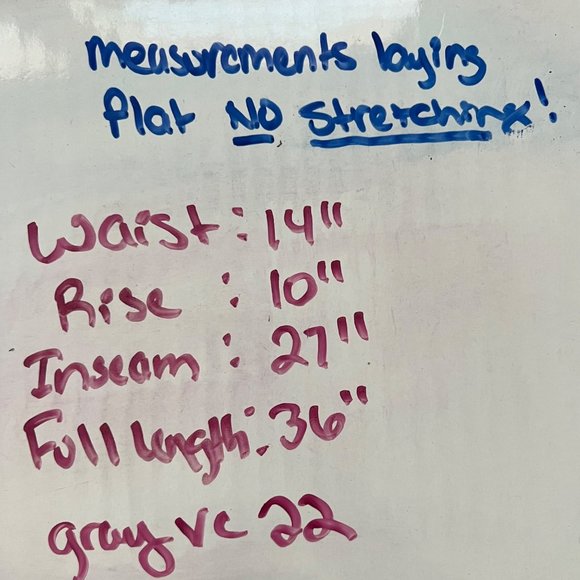 measurements laying
flat NO stretching!
Waist: 14"
Rise : 10"
Inseam : 27"
Full length: 36"
gray vc 22